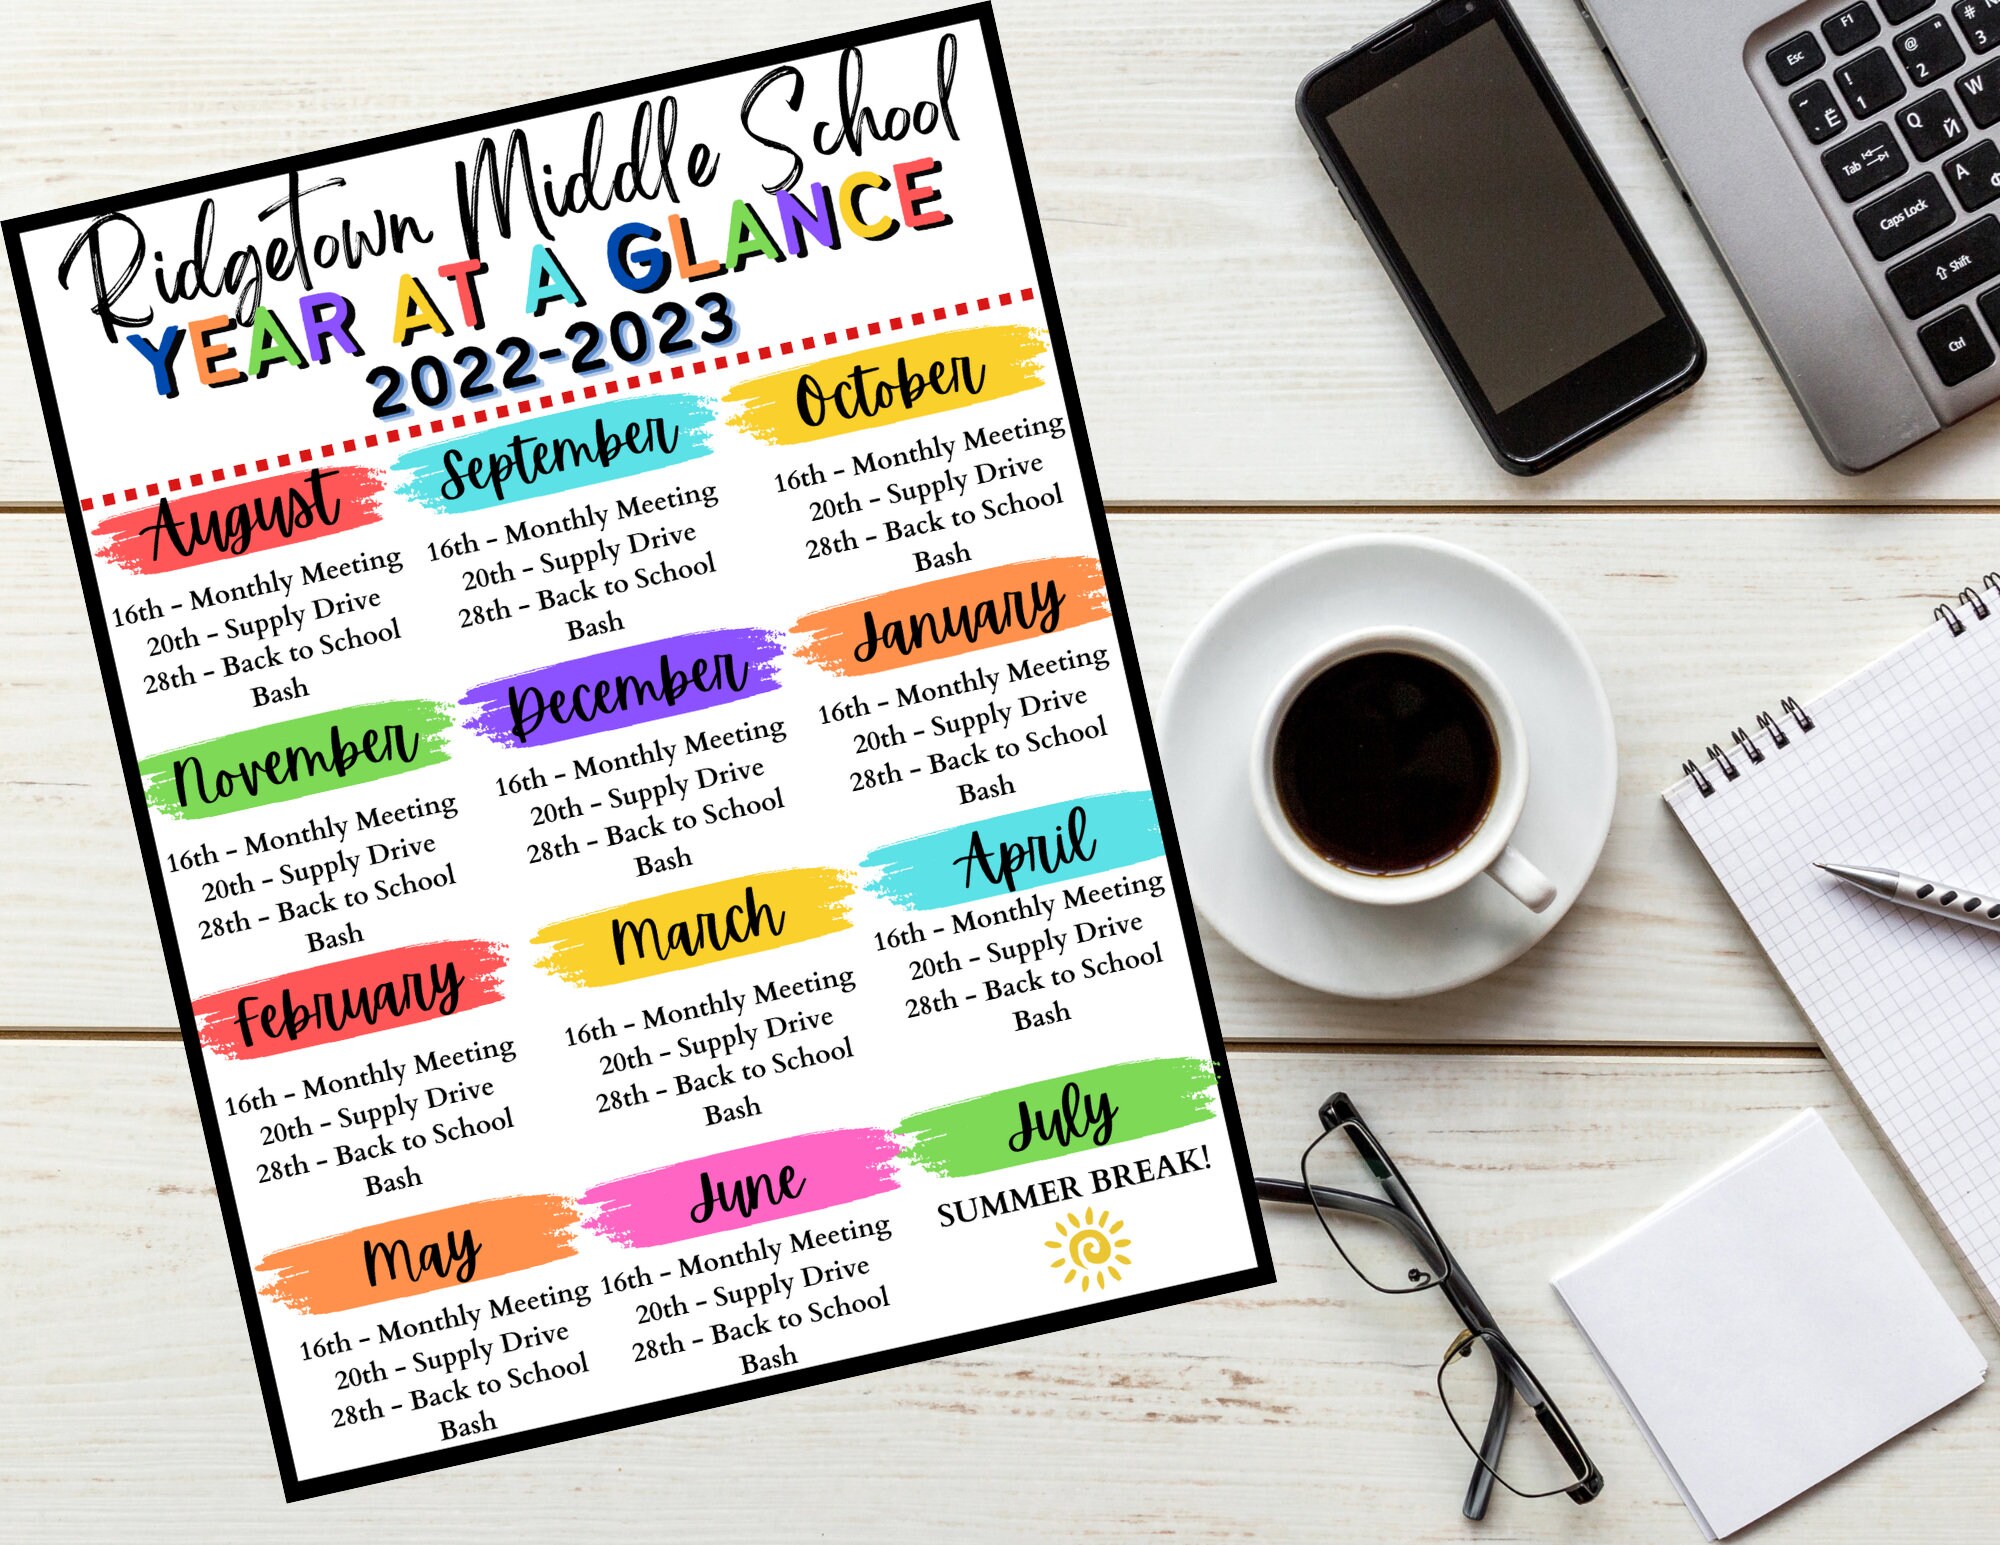 Ridgetown Middle School
YEAR AT A GLANCE
2022-2023
August
16th - Monthly Meeting
20th - Supply Drive
28th - Back to School
Bash
September
16th - Monthly Meeting
20th - Supply Drive
28th - Back to School
Bash
October
16th - Monthly Meeting
20th - Supply Drive
28th - Back to School
Bash
November
16th - Monthly Meeting
20th - Supply Drive
28th - Back to School
Bash
December
16th - Monthly Meeting
20th - Supply Drive
28th - Back to School
Bash
January
16th - Monthly Meeting
20th - Supply Drive
28th - Back to School
Bash
February
16th - Monthly Meeting
20th - Supply Drive
28th - Back to School
Bash
March
16th - Monthly Meeting
20th - Supply Drive
28th - Back to School
Bash
April
16th - Monthly Meeting
20th - Supply Drive
28th - Back to School
Bash
May
16th - Monthly Meeting
20th - Supply Drive
28th - Back to School
Bash
June
16th - Monthly Meeting
20th - Supply Drive
28th - Back to School
Bash
July
SUMMER BREAK!
Esc F1
~ Ё ! 1 @ " 2 # № 3
Tab Q Й W
Caps Lock A Ф
Shift
Ctrl